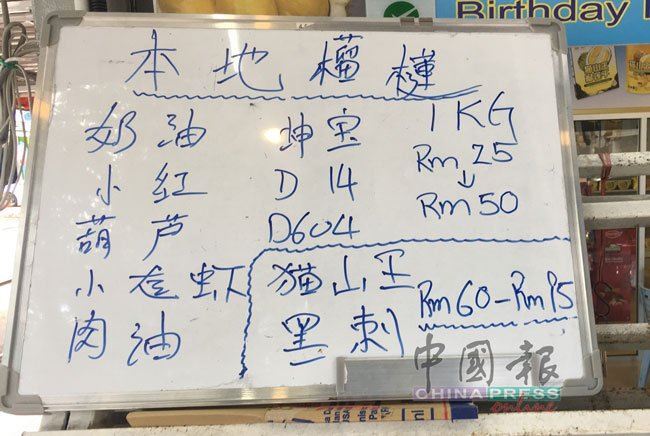 Birthday
本地榴槤
奶油 坤宝 1KG
小红 D14 Rm 25
↓
葫芦 D604 Rm 50
小龙虾 猫山王 Rm60-Rm95
肉油 黑刺
中國報
CHINA PRESS
online